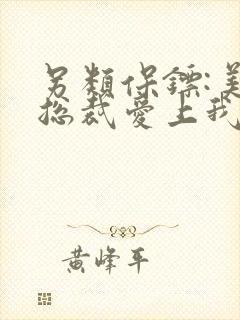 另類保鏢:美
總裁愛上我
黃峰平